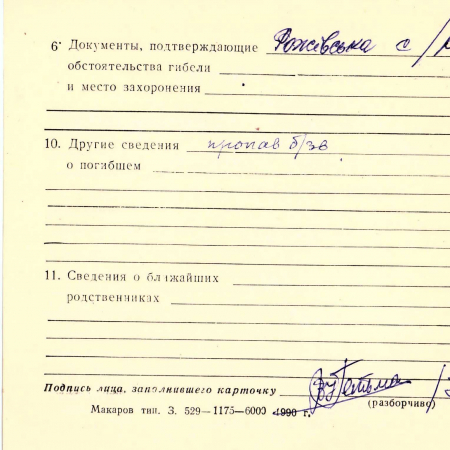 6· Документы, подтверждающие Рожівська с/
обстоятельства гибели
и место захоронения
10. Другие сведения пропав б/зв
о погибшем
11. Сведения о ближайших
родственниках
Подпись лица, заполнившего карточку Гетьма
(разборчиво)
Макаров тип. З. 529—1175—6000 1990 г.